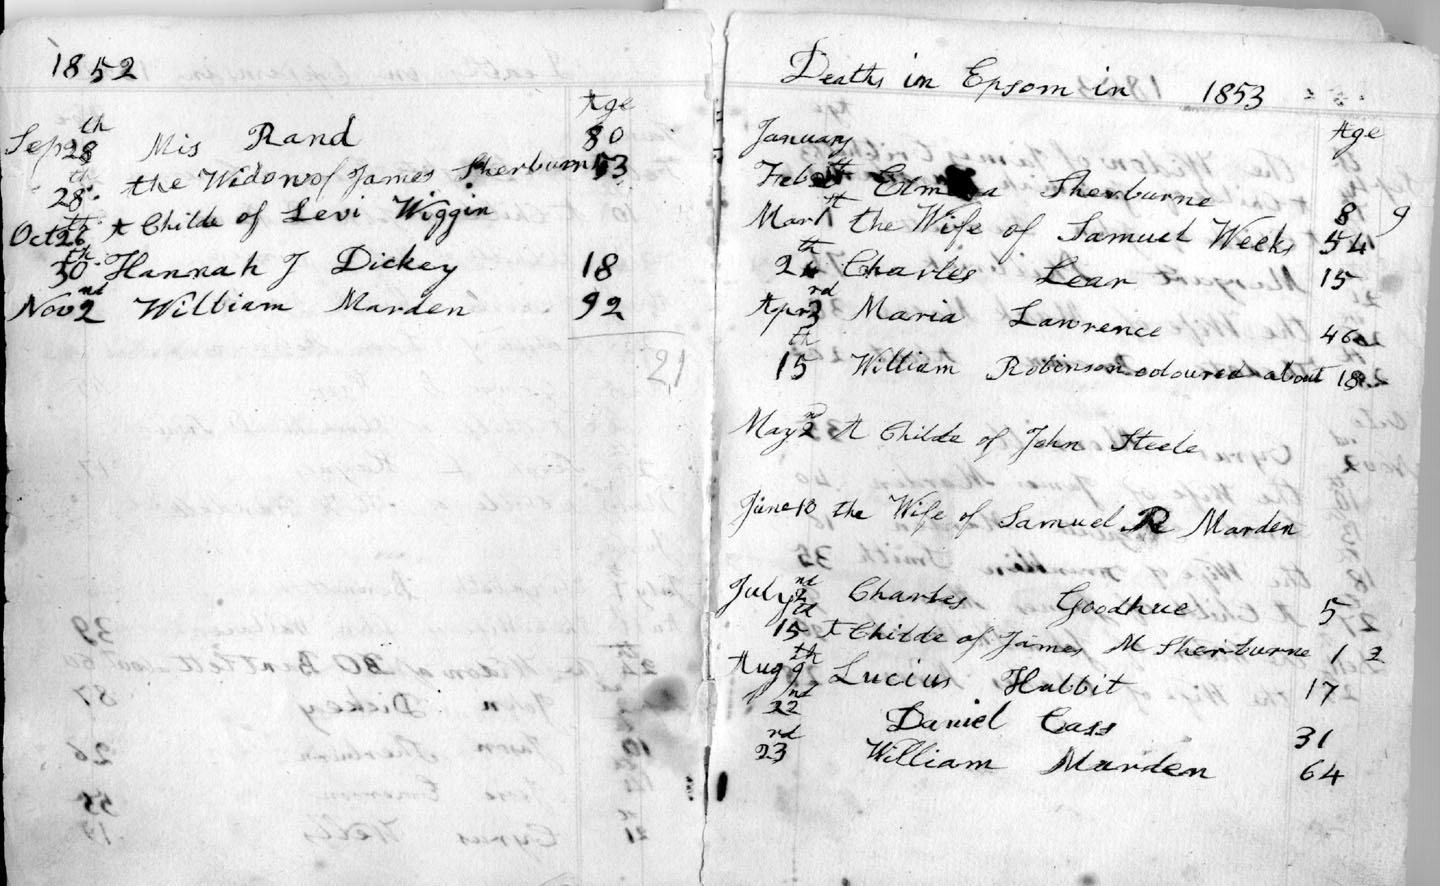 1852
Age
Sep 28th Mis Rand 80
28th the Widow of James Sherburn 53
Oct 26th A Childe of Levi Wiggin
30th Hannah J Dickey 18
Nov 2nd William Marden 92
21
Deaths in Epsom in 1853
Age
January
Feb th Sherburne 8 9
Mar 1st the Wife of Samuel Weeks 54
24th Charles Lear 15
Apr 3rd Maria Lawrence 46
15th William Robinson coloured about 18
May 2nd A Childe of John Steele
June 10 the Wife of Samuel R Marden
July 2nd Charles Goodhue 5
15th A Childe of James M Sherburne 1 2
Aug 9th Lucius Halbit 17
22nd Daniel Cass 31
23rd William Marden 64